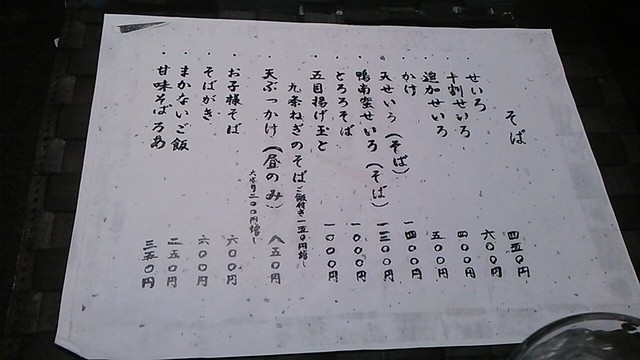 そば
・せいろ 四五〇円
・十割せいろ 六〇〇円
・追加せいろ 四〇〇円
・かけ 五〇〇円
・天せいろ(そば) 一四〇〇円
・鴨南蛮せいろ(そば) 一三〇〇円
・とろろそば 一〇〇〇円
・五目揚げ玉と 一〇〇〇円
九条ねぎのそば ご飯付き一五〇円増し
・天ぶっかけ(昼のみ) 八五〇円
大盛り二〇〇円増し
・お子様そば 六〇〇円
・そばがき 六〇〇円
・まかないご飯 二五〇円
・甘味そばろあ 三五〇円